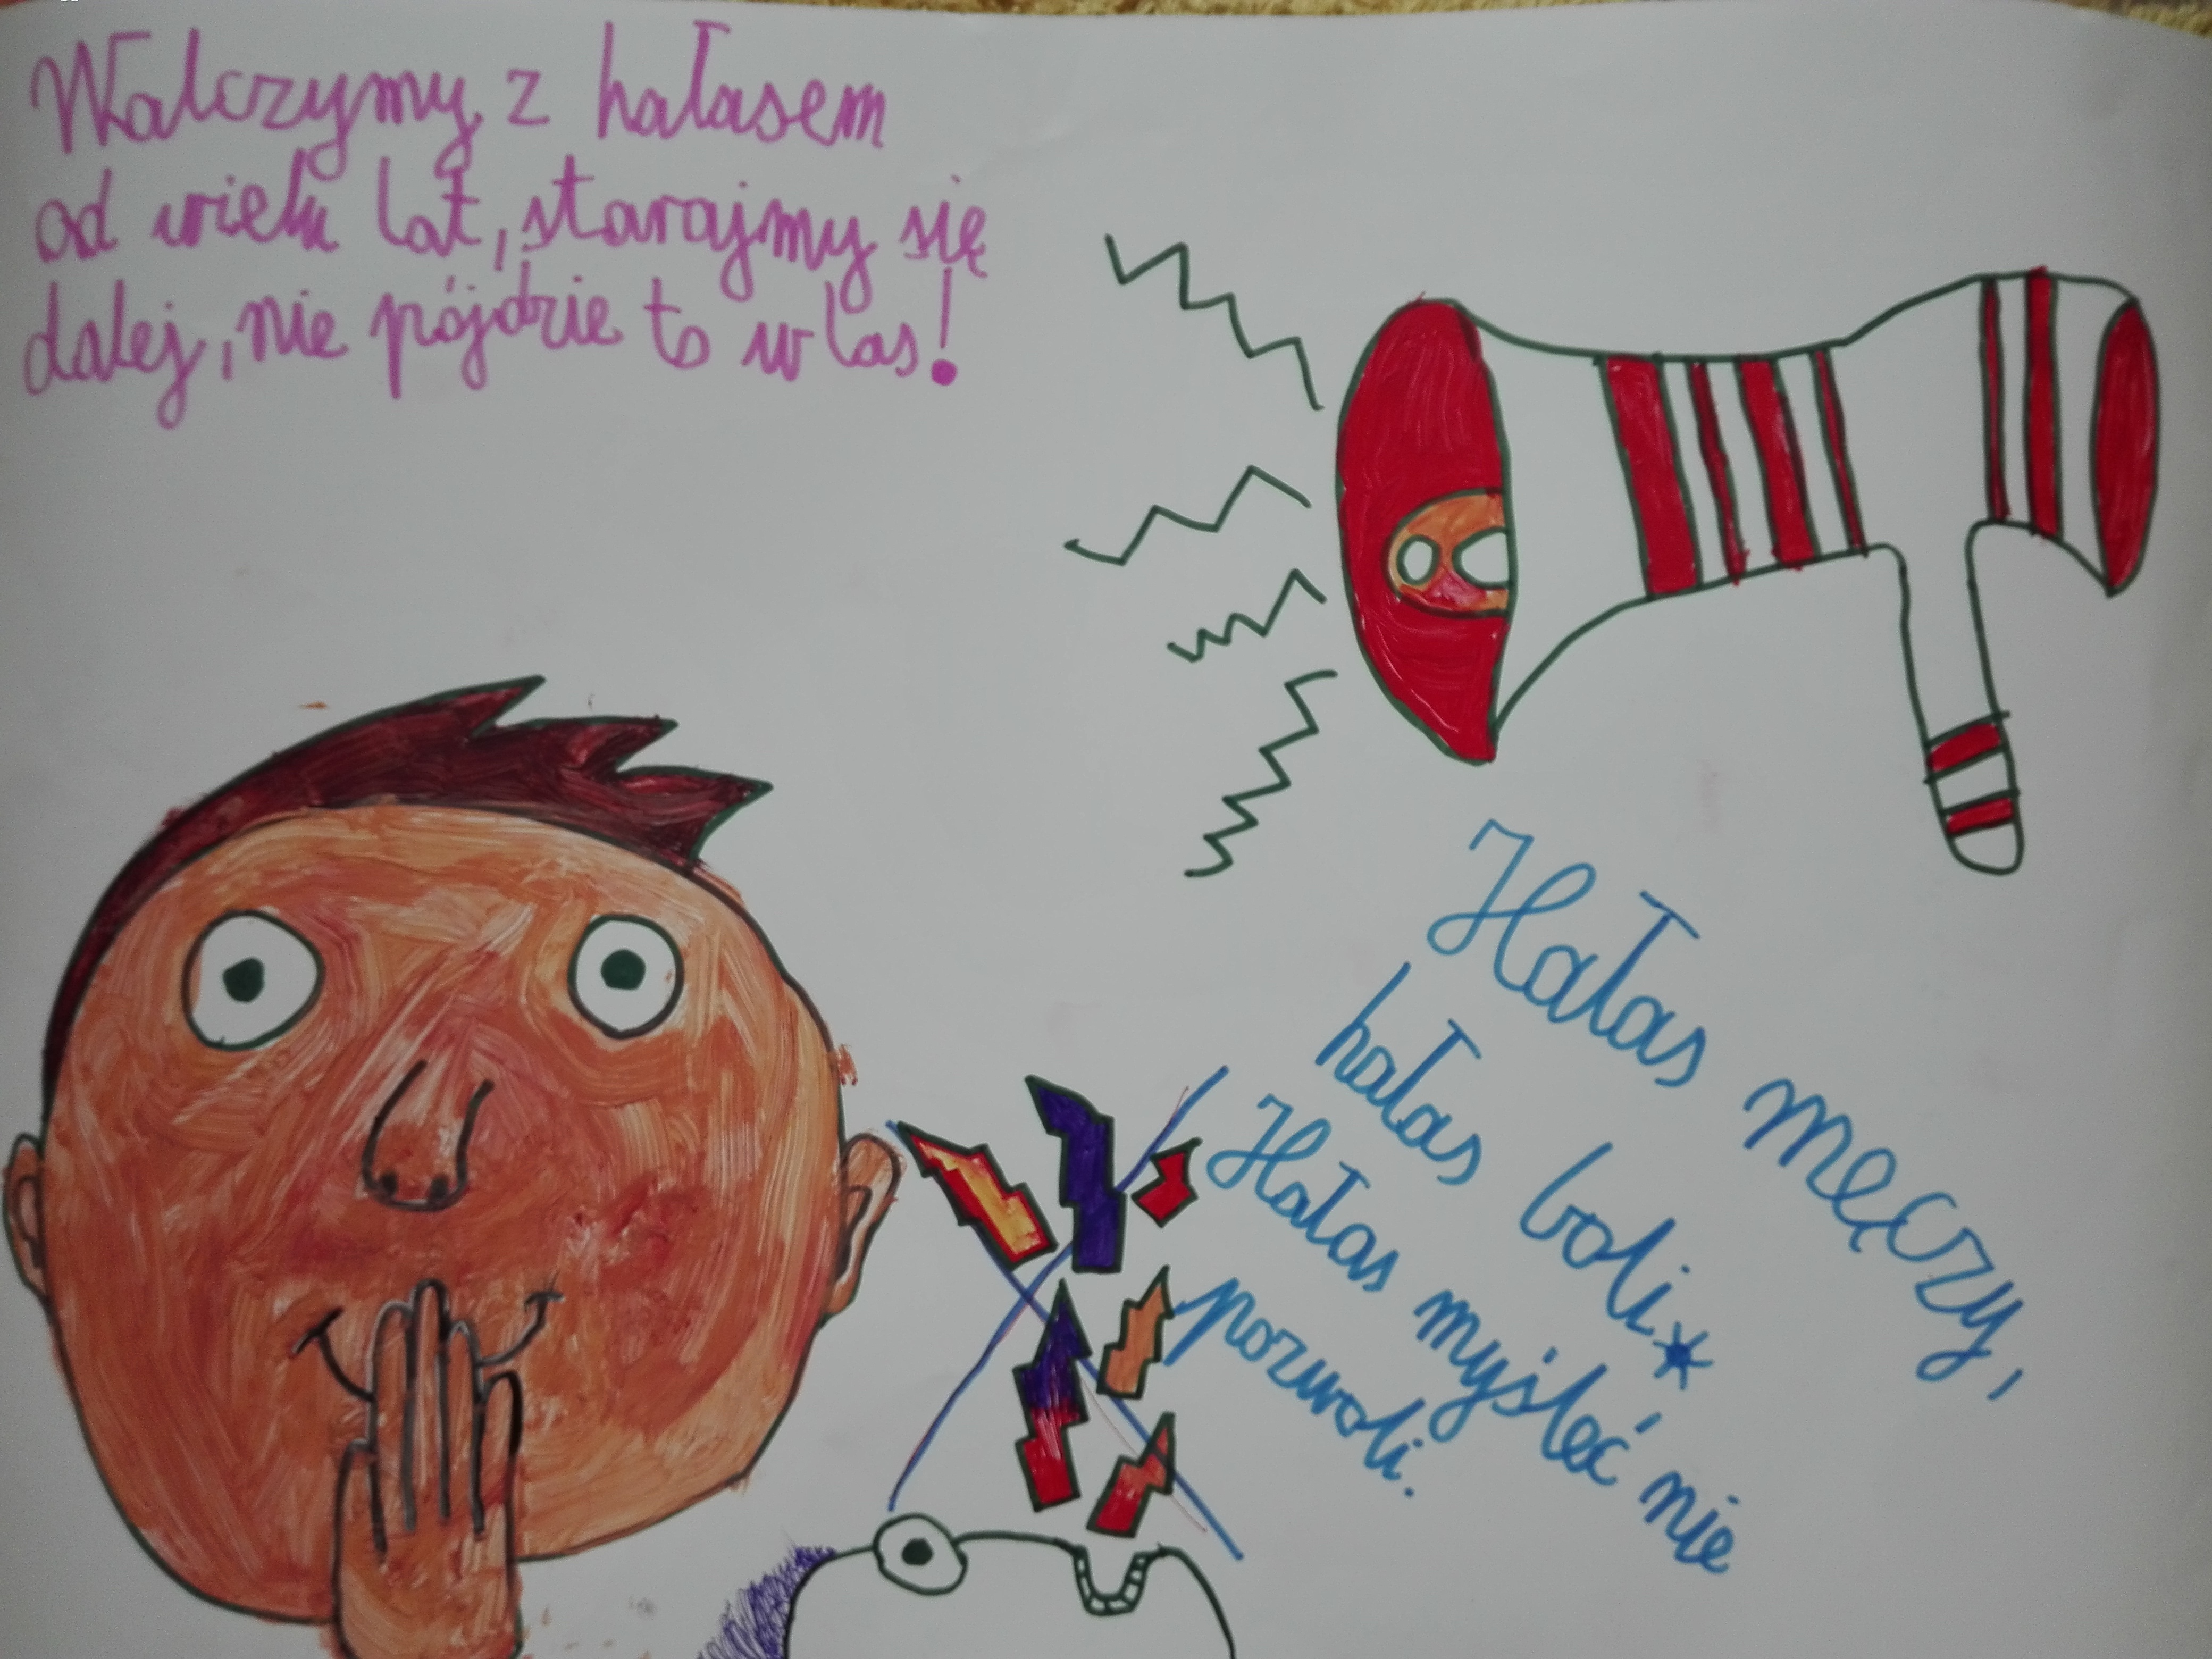 Walczymy z hałasem
od wielu lat, starajmy się
dalej, nie pójdzie to w las!
Hałas męczy,
hałas boli*
Hałas myśleć nie
pozwoli.